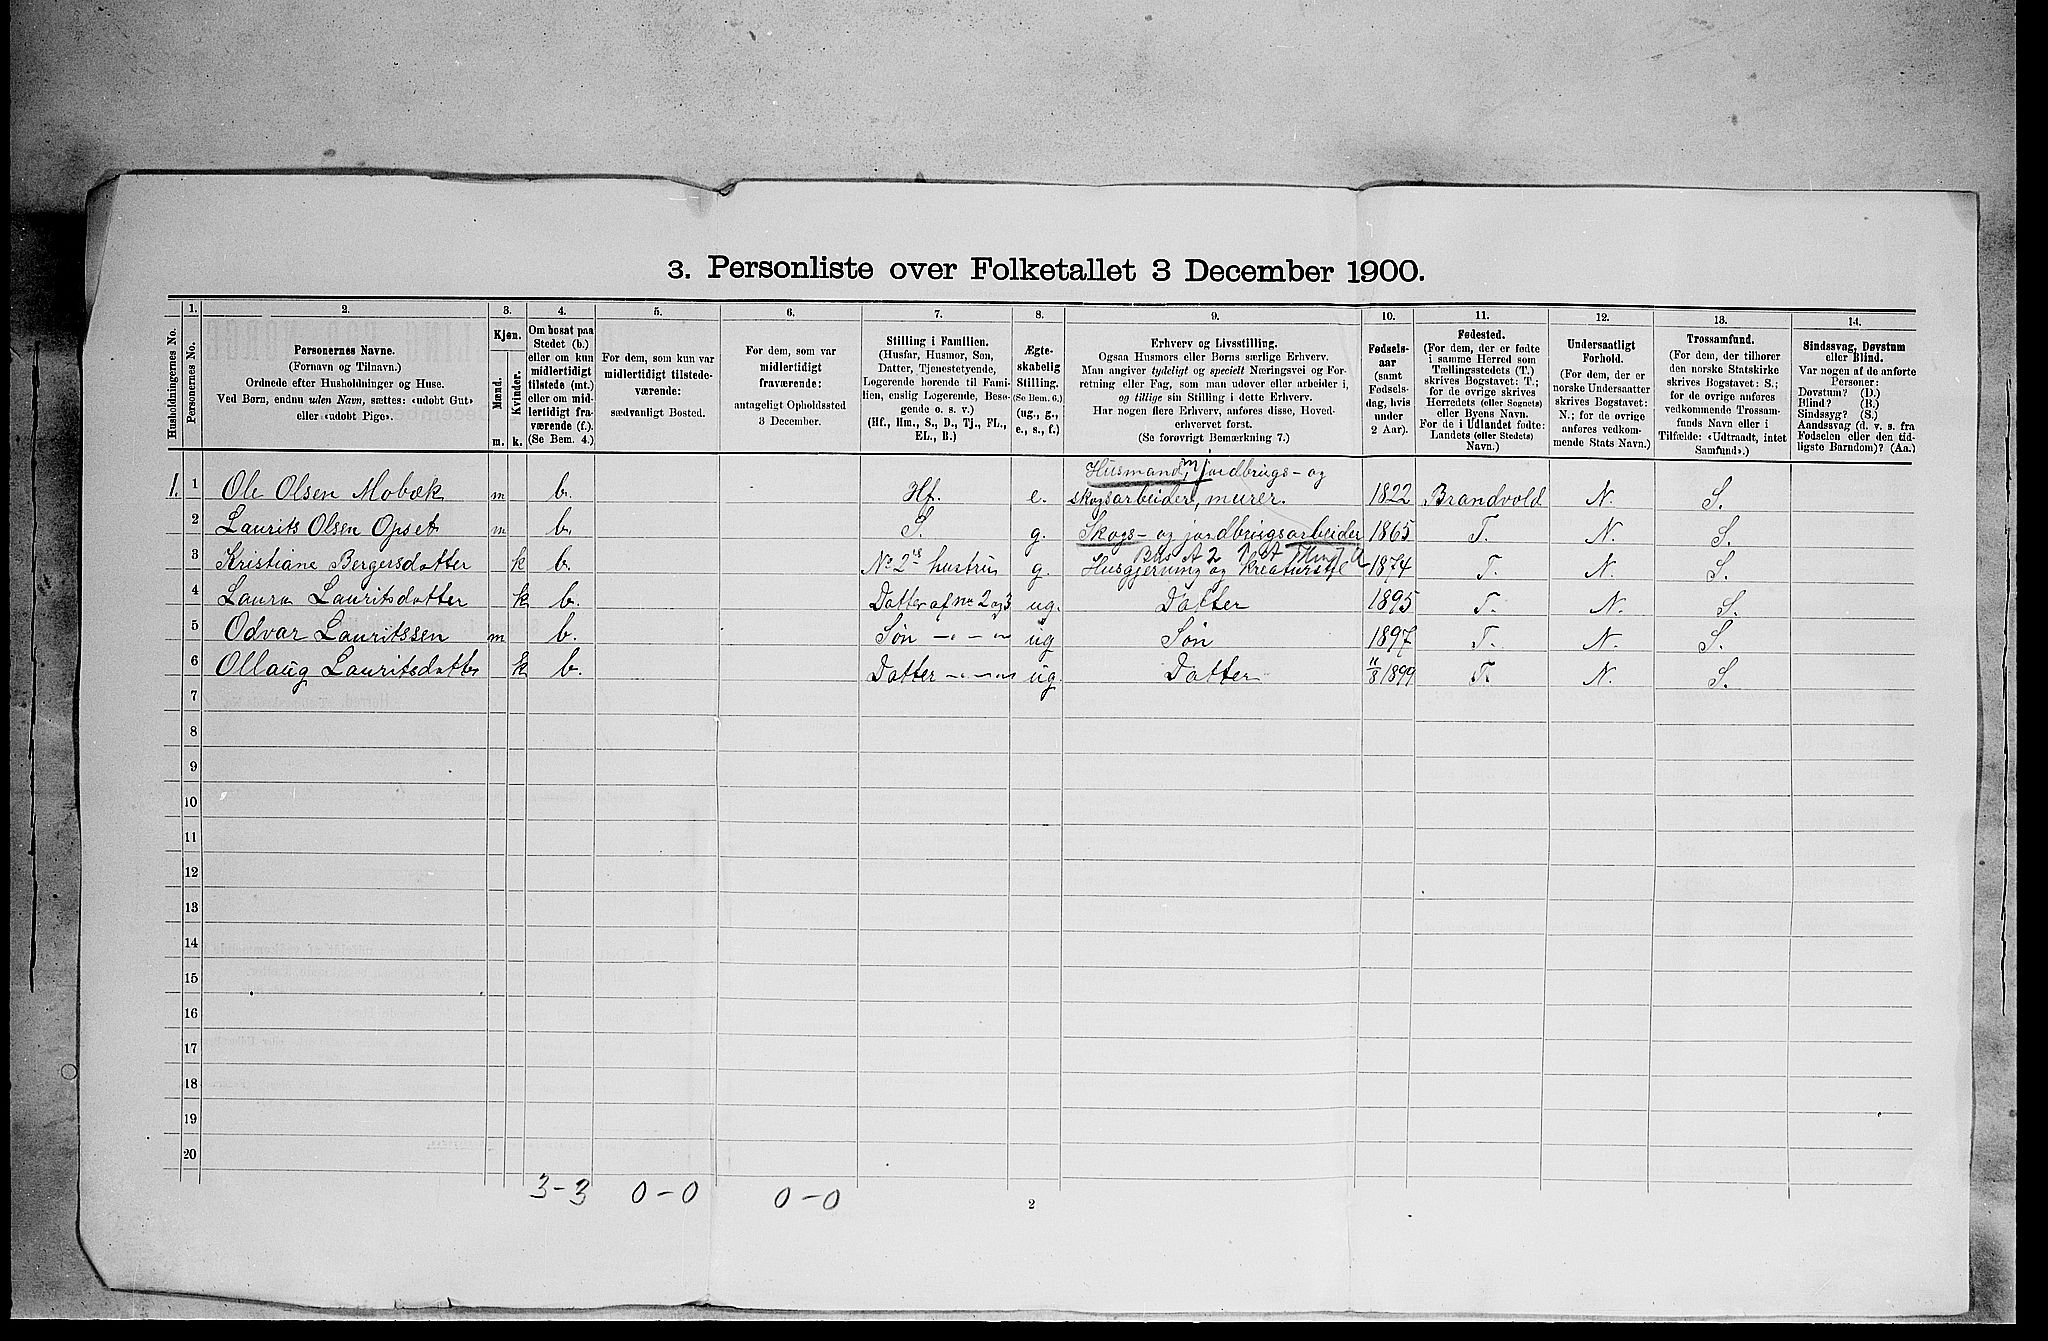 3. Personliste over Folketallet 3 December 1900.
1. 2. 3. 4. 5. 6. 7. 8. 9. 10. 11. 12. 13. 14.
Husholdningernes No.
Personernes No.
Personernes Navne.
(Fornavn og Tilnavn.)
Ordnede efter Husholdninger og Huse.
Ved Børn, endnu uden Navn, sættes: «udobt Gut»
eller «udobt Pige».
Kjøn.
Mænd.
Kvinder.
m. k.
Om bosat paa
Stedet (b.)
eller om kun
midlertidigt
tilstede (mt.)
eller om mid-
lertidigt fra-
værende (f.)
(Se Bem. 4.)
For dem, som kun var
midlertidigt tilstede-
værende:
sædvanligt Bosted.
For dem, som var
midlertidigt
fraværende:
antageligt Opholdssted
3 December.
Stilling i Familien.
(Husfar, Husmor, Søn,
Datter, Tjenestetyende,
Logerende hørende til Fami-
lien, enslig Logerende, Besø-
gende o. s. v.)
(Hf., Hm., S., D., Tj., FL.,
EL., B.)
Ægte-
skabelig
Stilling.
(Se Bem. 6.)
(ug., g.,
e., s., f.)
Erhverv og Livsstilling.
Ogsaa Husmors eller Børns særlige Erhverv.
Man angiver tydeligt og specielt Næringsvei og For-
retning eller Fag, som man udover eller arbeider i,
og tillige sin Stilling i dette Erhverv.
Har nogen flere Erhverv, anføres disse, Hoved-
erhvervet først.
(Se forøvrigt Bemærkning 7.)
Fødsels-
aar
(samt
Fødsels-
dag, hvis
under
2 Aar).
Fødested.
(For dem, der er fødte
i samme Herred som
Tællingsstedets (T.)
skrives Bogstavet: T.;
for de øvrige skrives
Herredets (eller Sognets)
eller Byens Navn.
For de i Udlandet fødte:
Landets (eller Stedets)
Navn.)
Undersaatligt
Forhold.
(For dem, der er
norske Undersaatter
skrives Bogstavet:
N.; for de øvrige
anføres vedkom-
mende Stats Navn.)
Trossamfund.
(For dem, der tilhører
den norske Statskirke
skrives Bogstavet: S.;
for de øvrige anføres
vedkommende Trossam-
funds Navn eller i
Tilfælde: «Udtraadt, intet
Samfund».)
Sindssvag, Døvstum
eller Blind.
Var nogen af de anførte
Personer:
Døvstum? (D.)
Blind? (B.)
Sindssyg? (S.)
Aandssvag (d. v. s. fra
Fødselen eller den tid-
ligste Barndom)? (Aa.)
Husmand m jordbrugs- og
1. 1 Ole Olsen Mobæk m b. Hf. e. skogsarbeider, murer. 1822 Brandvold N. S.
2 Laurits Olsen Opset m b. S. g. Skogs- og jordbrugsarbeider 1865 T. N. S.
3 Kristiane Bergersdatter k b. No 2's hustru g. Husgjerning og kreaturstel 1874 T. N. S.
4 Laura Lauritsdatter k b. Datter af no 2 og 3 ug. Datter 1895 T. N. S.
5 Odvar Lauritssen m b. Søn -"- -"- ug Søn 1897 T. N. S.
6 Ollaug Lauritsdatter k b. Datter -"- -"- ug. Datter 11/8 1899 T. N. S.
7
8
9
10
11
12
13
14
15
16
17
18
19
20
3-3 0-0 0-0
2